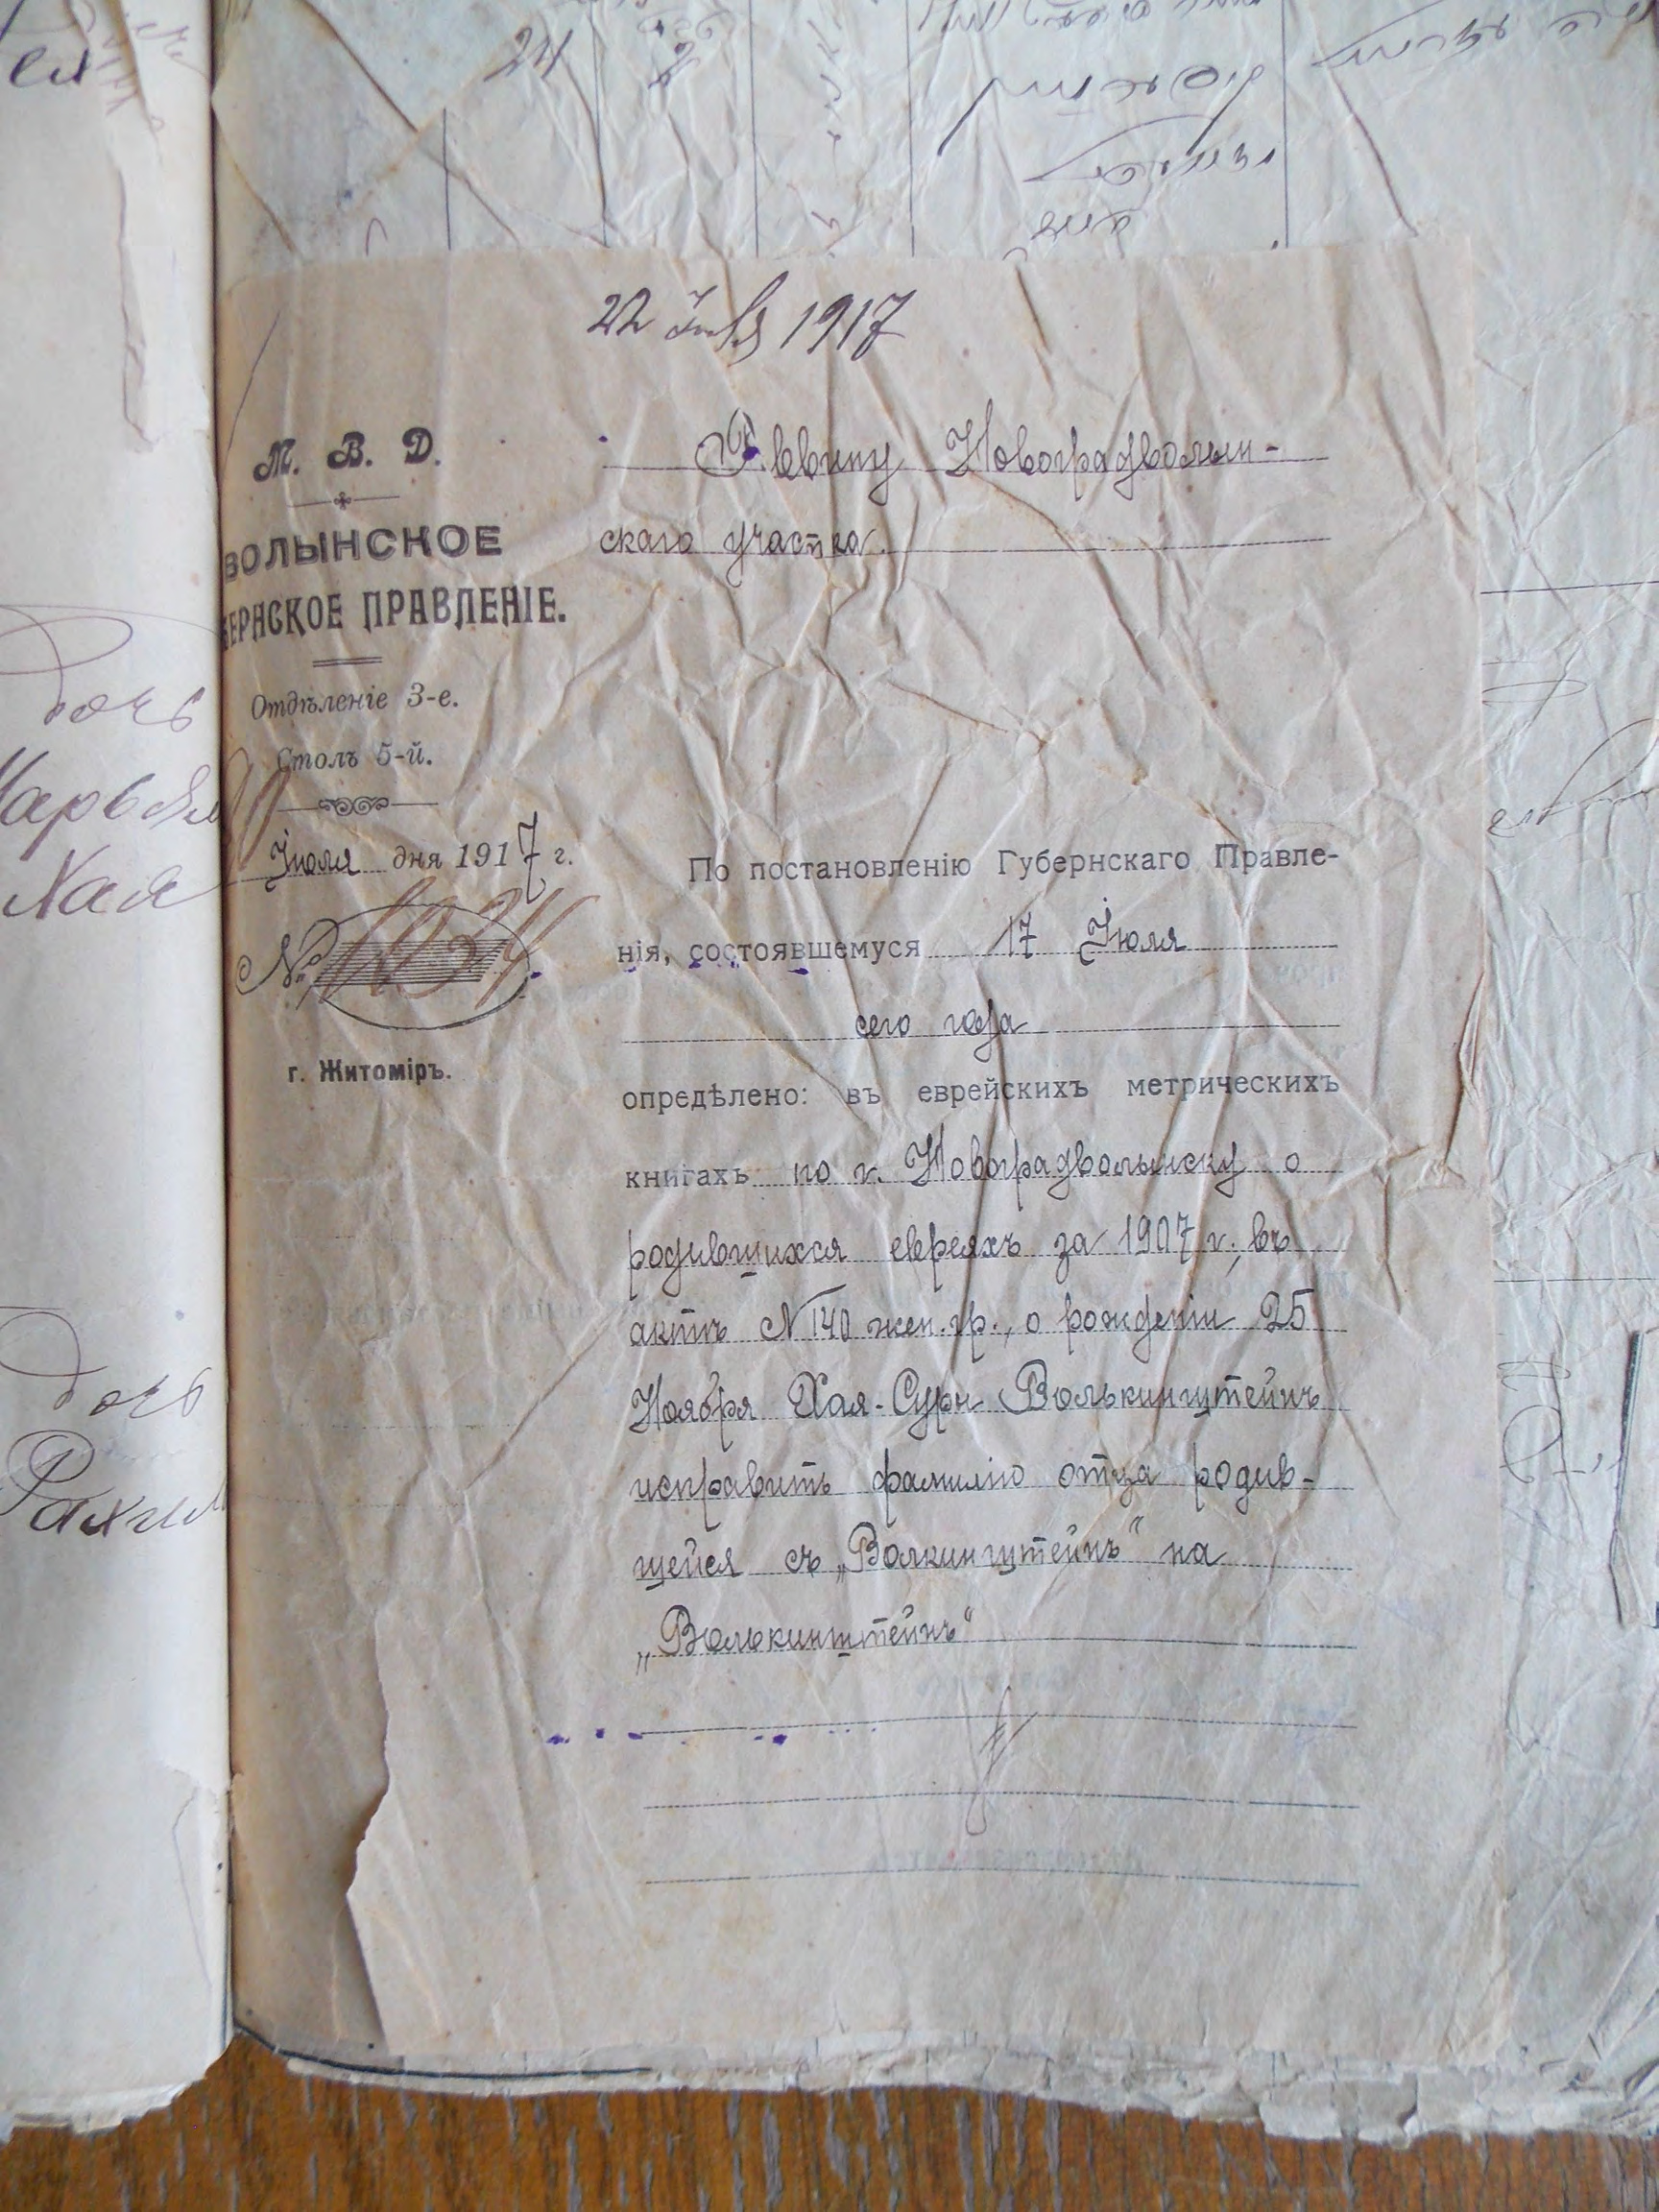 24
22 Июля 1917
М. В. Д.
ВОЛЫНСКОЕ
БЕРНСКОЕ ПРАВЛЕНІЕ.
Отдѣленіе 3-е.
Столъ 5-й.
Іюля дня 1917 г.
№
г. Житоміръ.
Раввину Новоградволын-
скаго участка.
По постановленію Губернскаго Правле-
нія, состоявшемуся 17 Іюля
сего года
опредѣлено: въ еврейскихъ метрическихъ
книгахъ по г. Новоградволынску о
родившихся евреяхъ за 1907 г., въ
актѣ № 140 жен. гр., о рожденіи 25
Ноября Хая-Суры Волькинштейнъ
исправить фамилію отца родив-
шейся съ „Волкинштейнъ" на
„Волькинштейнъ"
дочь
Марьям
Хая
дочь
Рахиль